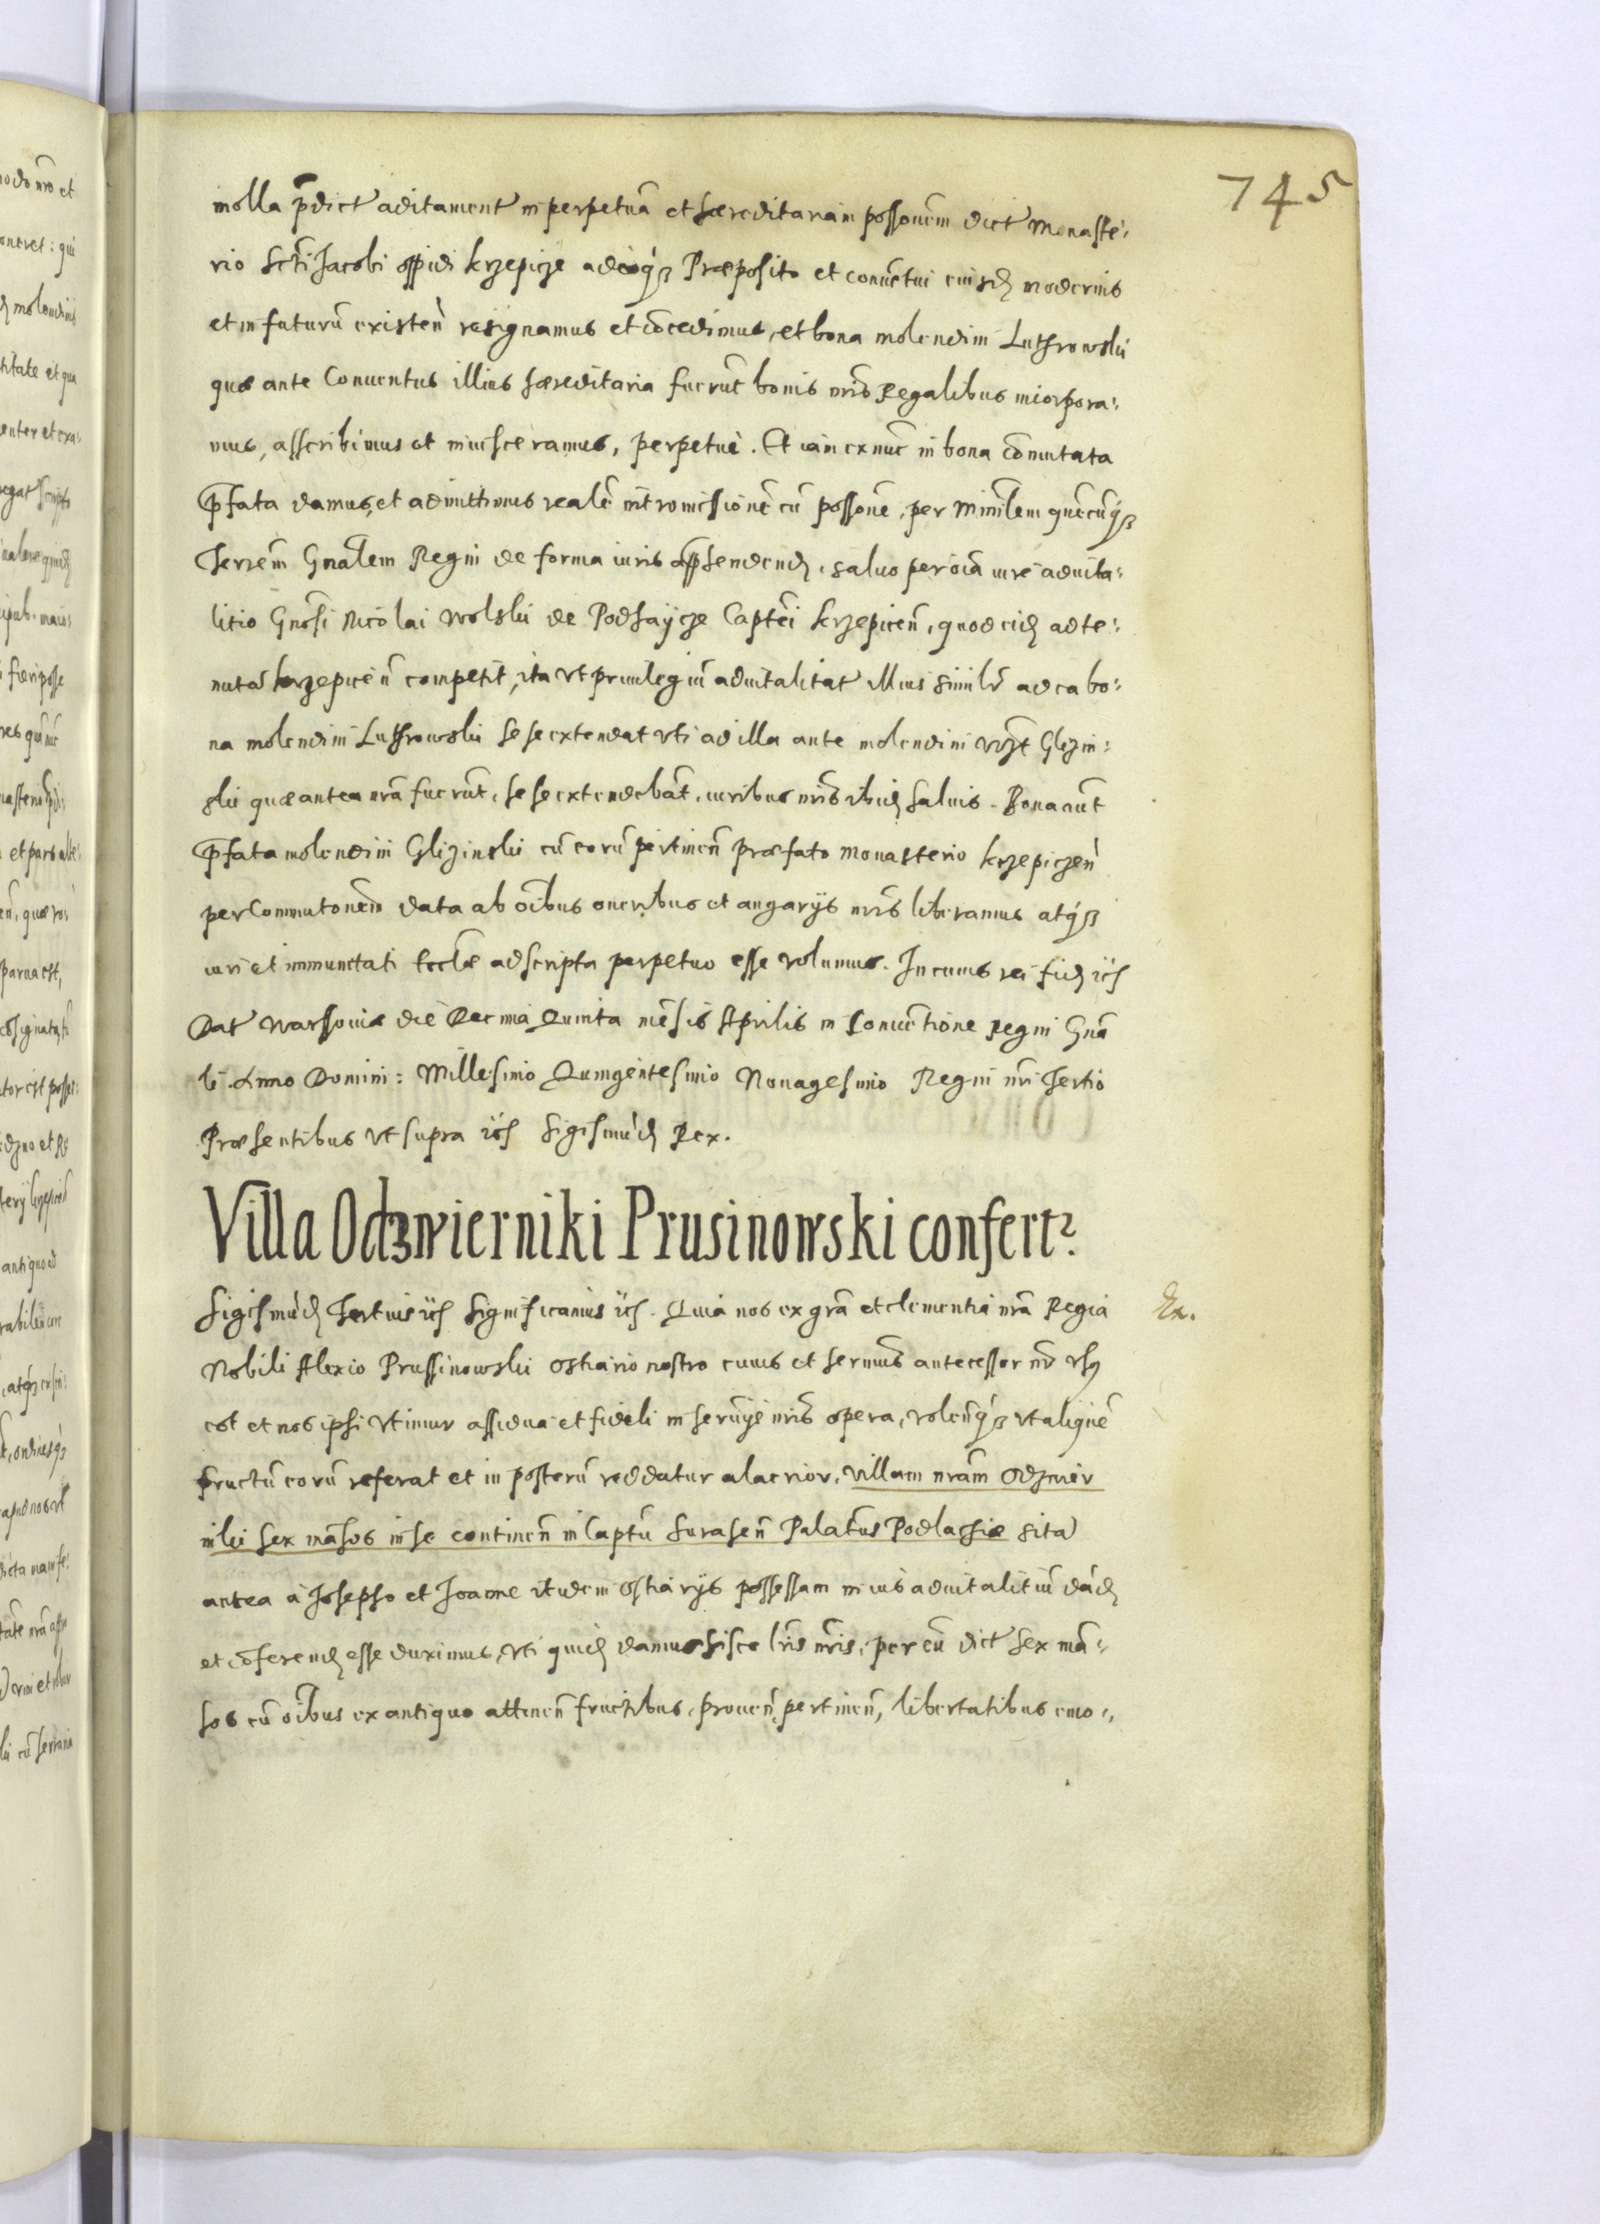 745
molla p̄dict aditament in perpetuā et hæreditariam possonem dict Monaste:
rio Scti Jacobi oppidi krzepicze adeoq3 Præposito et conuētui eiusd modernis
et in futurū existeñ resignamus et cōcedimus, et bona molendini Luthrowski
quæ ante Conuentus illius hæreditaria fuerūt bonis nr̄is Regalibus incorpora:
mus, asscribimus et inuisceramus, perpetuè. Et iam ex nūc in bona cōmutata
p̄fata damus, et admittimus realē intromissionē cū possonē, per Minrlem quēcūq3
Terrēm Gnalem Regni de forma iuris app̄hendend, saluo per oīa iure aduita:
litio Gnosi Nicolai Wolski de Podhaycze Captēi krzepiceñ, quod eid ad te:
nutā krzepiceñ competit, ita vt priuilegiū aduitalitat illius similr ad ea bo:
na molendini Luthrowski sese extendat vti ad illa ante molendini vizt Glizin:
ski quæ antea nrā fuerūt, sese extendebāt, iuribus nr̄is ibid saluis. Bona aūt
p̄fata molendini Glizinski cū eorū pertineñ præfato Monasterio krzepiczeñ
per Commutonēm data ab oībus oneribus et angarijs nr̄is liberamus atq3
iuri et immunitati Eccliæ adscripta perpetuo esse volumus. In cuius rei fid ich
Dat Warssouiæ die Decima Quinta mēsis Aprilis in Conuētione Regni Gnā
li Anno Domini: Millesimo Quingentesimo Nonagesimo Regni nri Tertio
Præsentibus vt supra ich Sigismūd Rex.
Villa Odzwierniki Prusinowski confert2.
Sigismūd Tertius ich Significamus ich. Quia nos ex grā et clementia nrā Regia
Ex.
Nobili Alexio Prussinowski ostiario nostro cuius et sereniss antecessor nr vsus
est et nos ipsi vtimur assidua et fideli in seruije nr̄is opera, volentq3 vt aliquē
fructū eorū referat et in posterū reddatur alacrior, villam nrām Odzwier
niki sex māsos in se contineñ in Captū Suraseñ Palatus Podlachiæ sitā
antea à Josepho et Joanne itidem ostiarijs possessam in ius aduitalitiū dād
et cōferend esse duximus, vti quid damus hisce lris nr̄is, per eū dict sex mā:
sos cū oībus ex antiquo attineñ fructibus, proueñ, pertineñ, libertatibus emo: